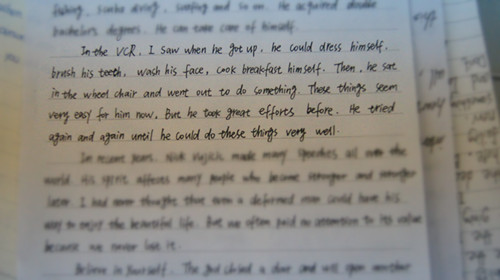 fishing, scuba diving, surfing and so on. He acquired double
bachelors degrees. He can take care of himself.
In the VCR, I saw when he got up, he could dress himself,
brush his teeth, wash his face, cook breakfast himself. Then, he sat
in the wheel chair and went out to do something. These things seem
very easy for him now. But he took great efforts before. He tried
again and again until he could do these things very well.
In recent years, Nick Vujicic made many speeches all over the
world. His spirit affects many people who become stronger and stronger
later. I had never thought that even a deformed man could have his
way to enjoy the beautiful life. But we often paid no attention to its value
because we never lost it.
Believe in yourself. The God closed a door and will open another